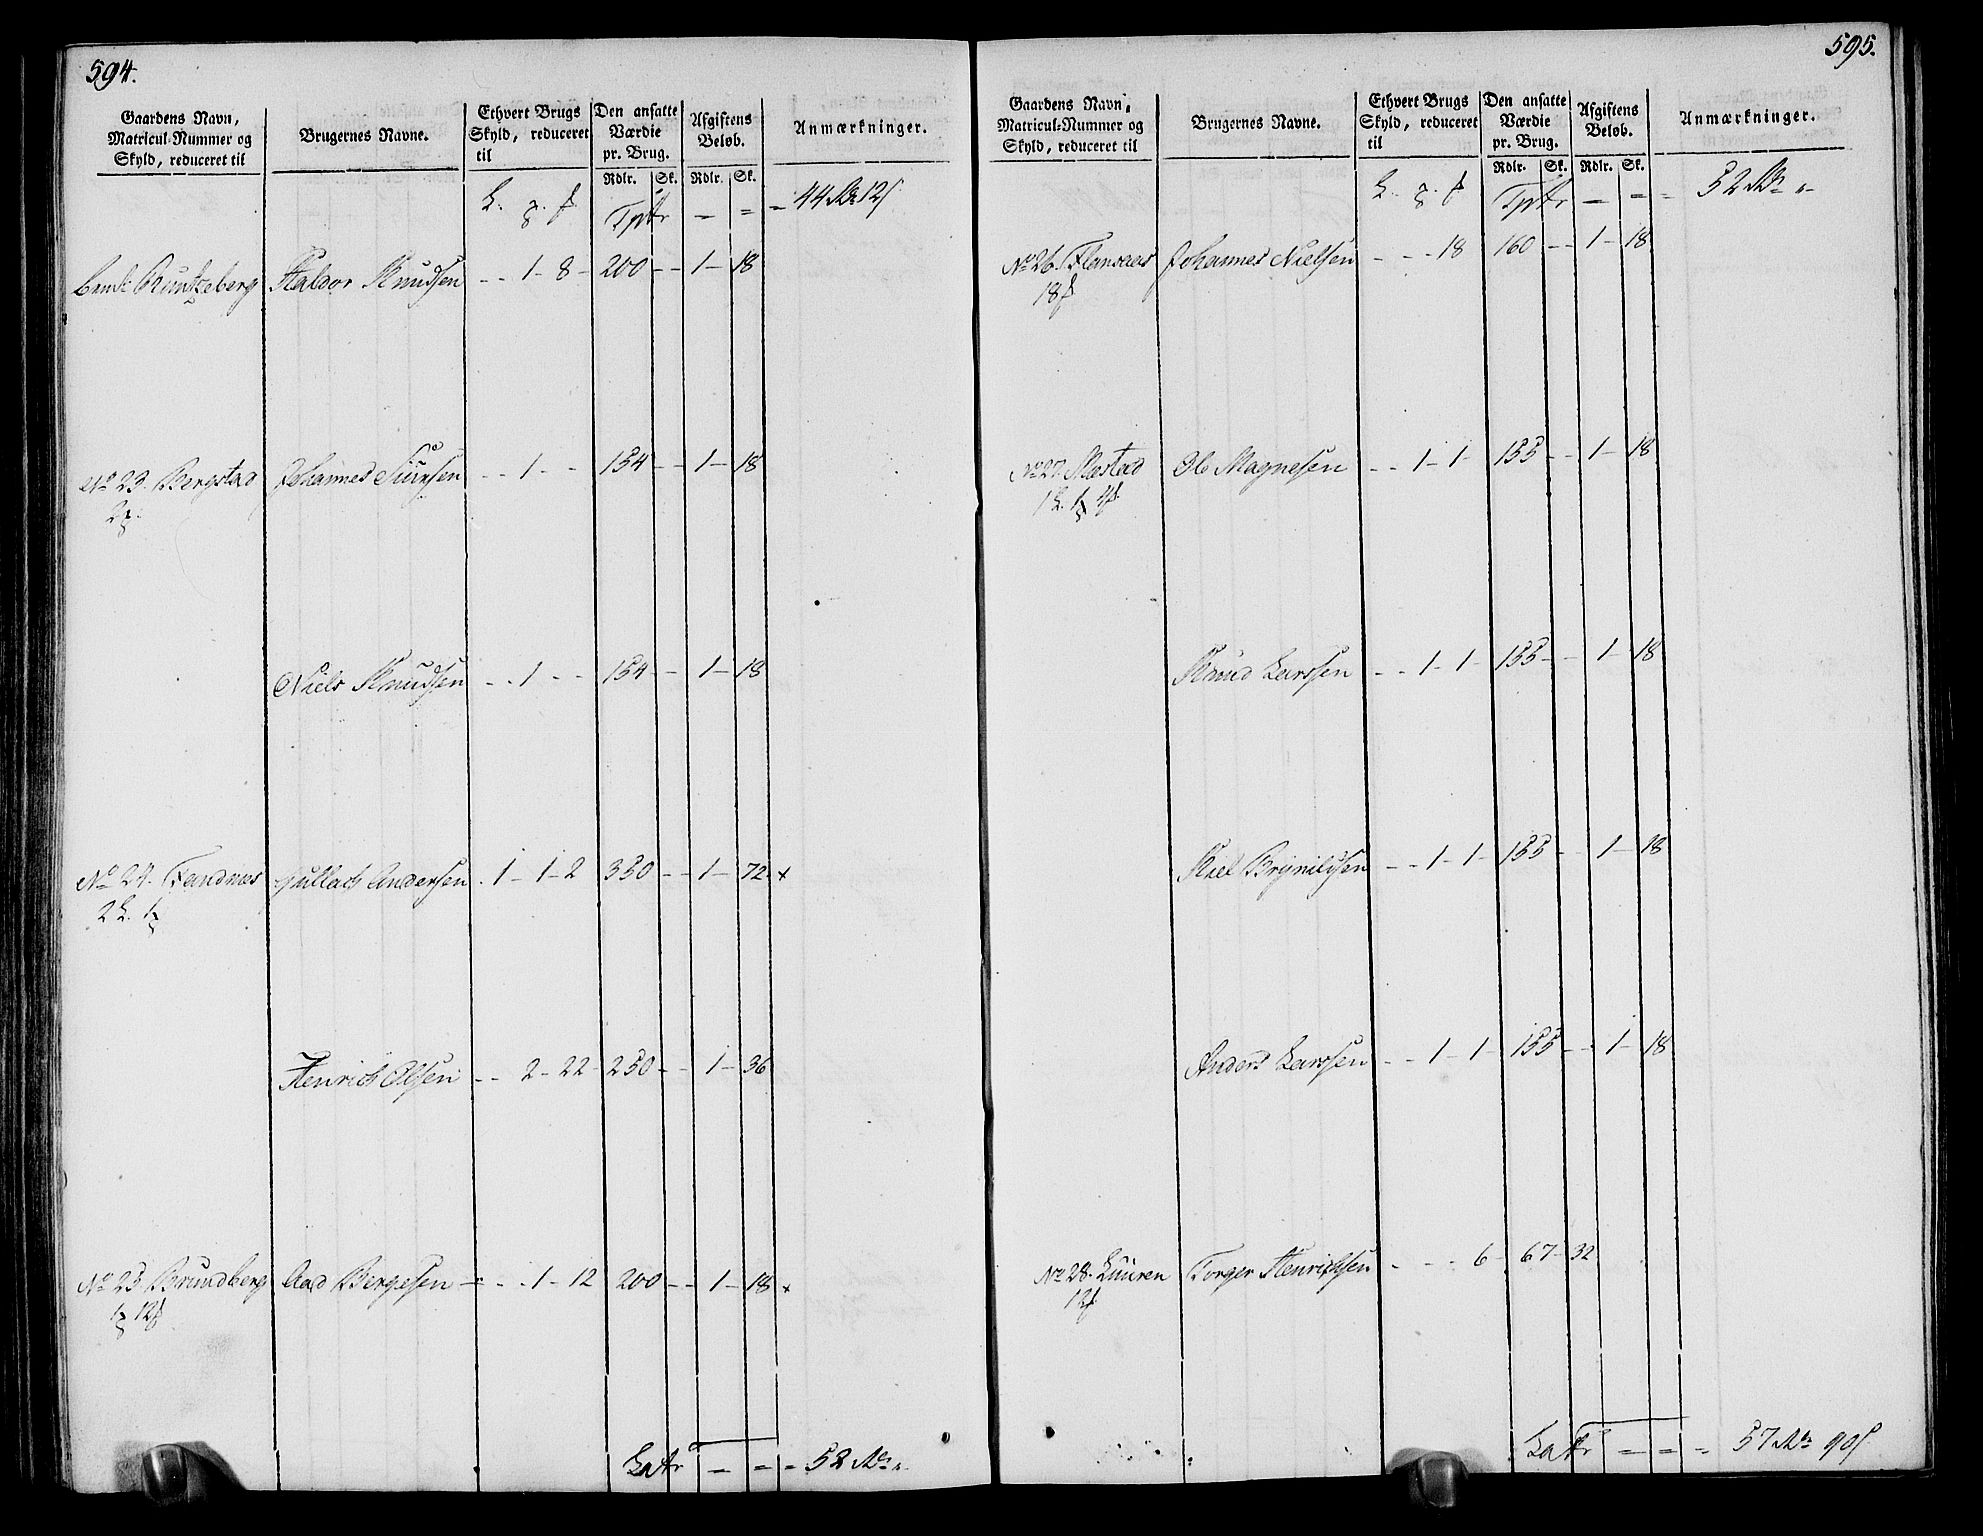 594.
Gaardens Navn, Matricul-Nummer og Skyld, reduceret til
Brugernes Navne.
Ethvert Brugs Skyld, reduceret til
Den ansatte Værdie pr. Brug.
Afgiftens Beløb.
Anmærkninger.
Rdlr. Sk. Rdlr. Sk.
Tptr - = = 44
Haldor Knudsen - - 1 - 8 - 200 - - 1 - 18
No 23. Bergstad Johannes Siursen - - 1 - - 154 - - 1 - 18
Niels Knudsen - - 1 - - 154 - - 1 - 18
No 24. Tandnes Gullach Andersen . 1 - 1 - 2 350 - - 1 - 72 x
Henrich Olsen - - 2 - 22 - 250 - - 1 - 36
No 25 Brundberg Aad Bergesen = - - 1 - 12 200 - - 1 - 18 x
Latr - = = 52
595.
Gaardens Navn, Matricul-Nummer og Skyld, reduceret til
Brugernes Navne.
Ethvert Brugs Skyld, reduceret til
Den ansatte Værdie pr. Brug.
Afgiftens Beløb.
Anmærkninger.
Rdlr. Sk. Rdlr. Sk.
Tptr - = = 52
No 26. Johannes Nielsen - - - 18 160 - - 1 - 18
No 27. Ole Magnesen - - 1 - 1 - 155 - - 1 - 18
Knud Larssen - - 1 - 1 - 155 - - 1 - 18
Brynildsen - - 1 - 1 - 155 - - 1 - 18
Anders Larssen - - 1 - 1 - 155 - - 1 - 18
No 28. Luuren Torger Henrichsen - - - 6 - 67 - 32
Latr = = = 57